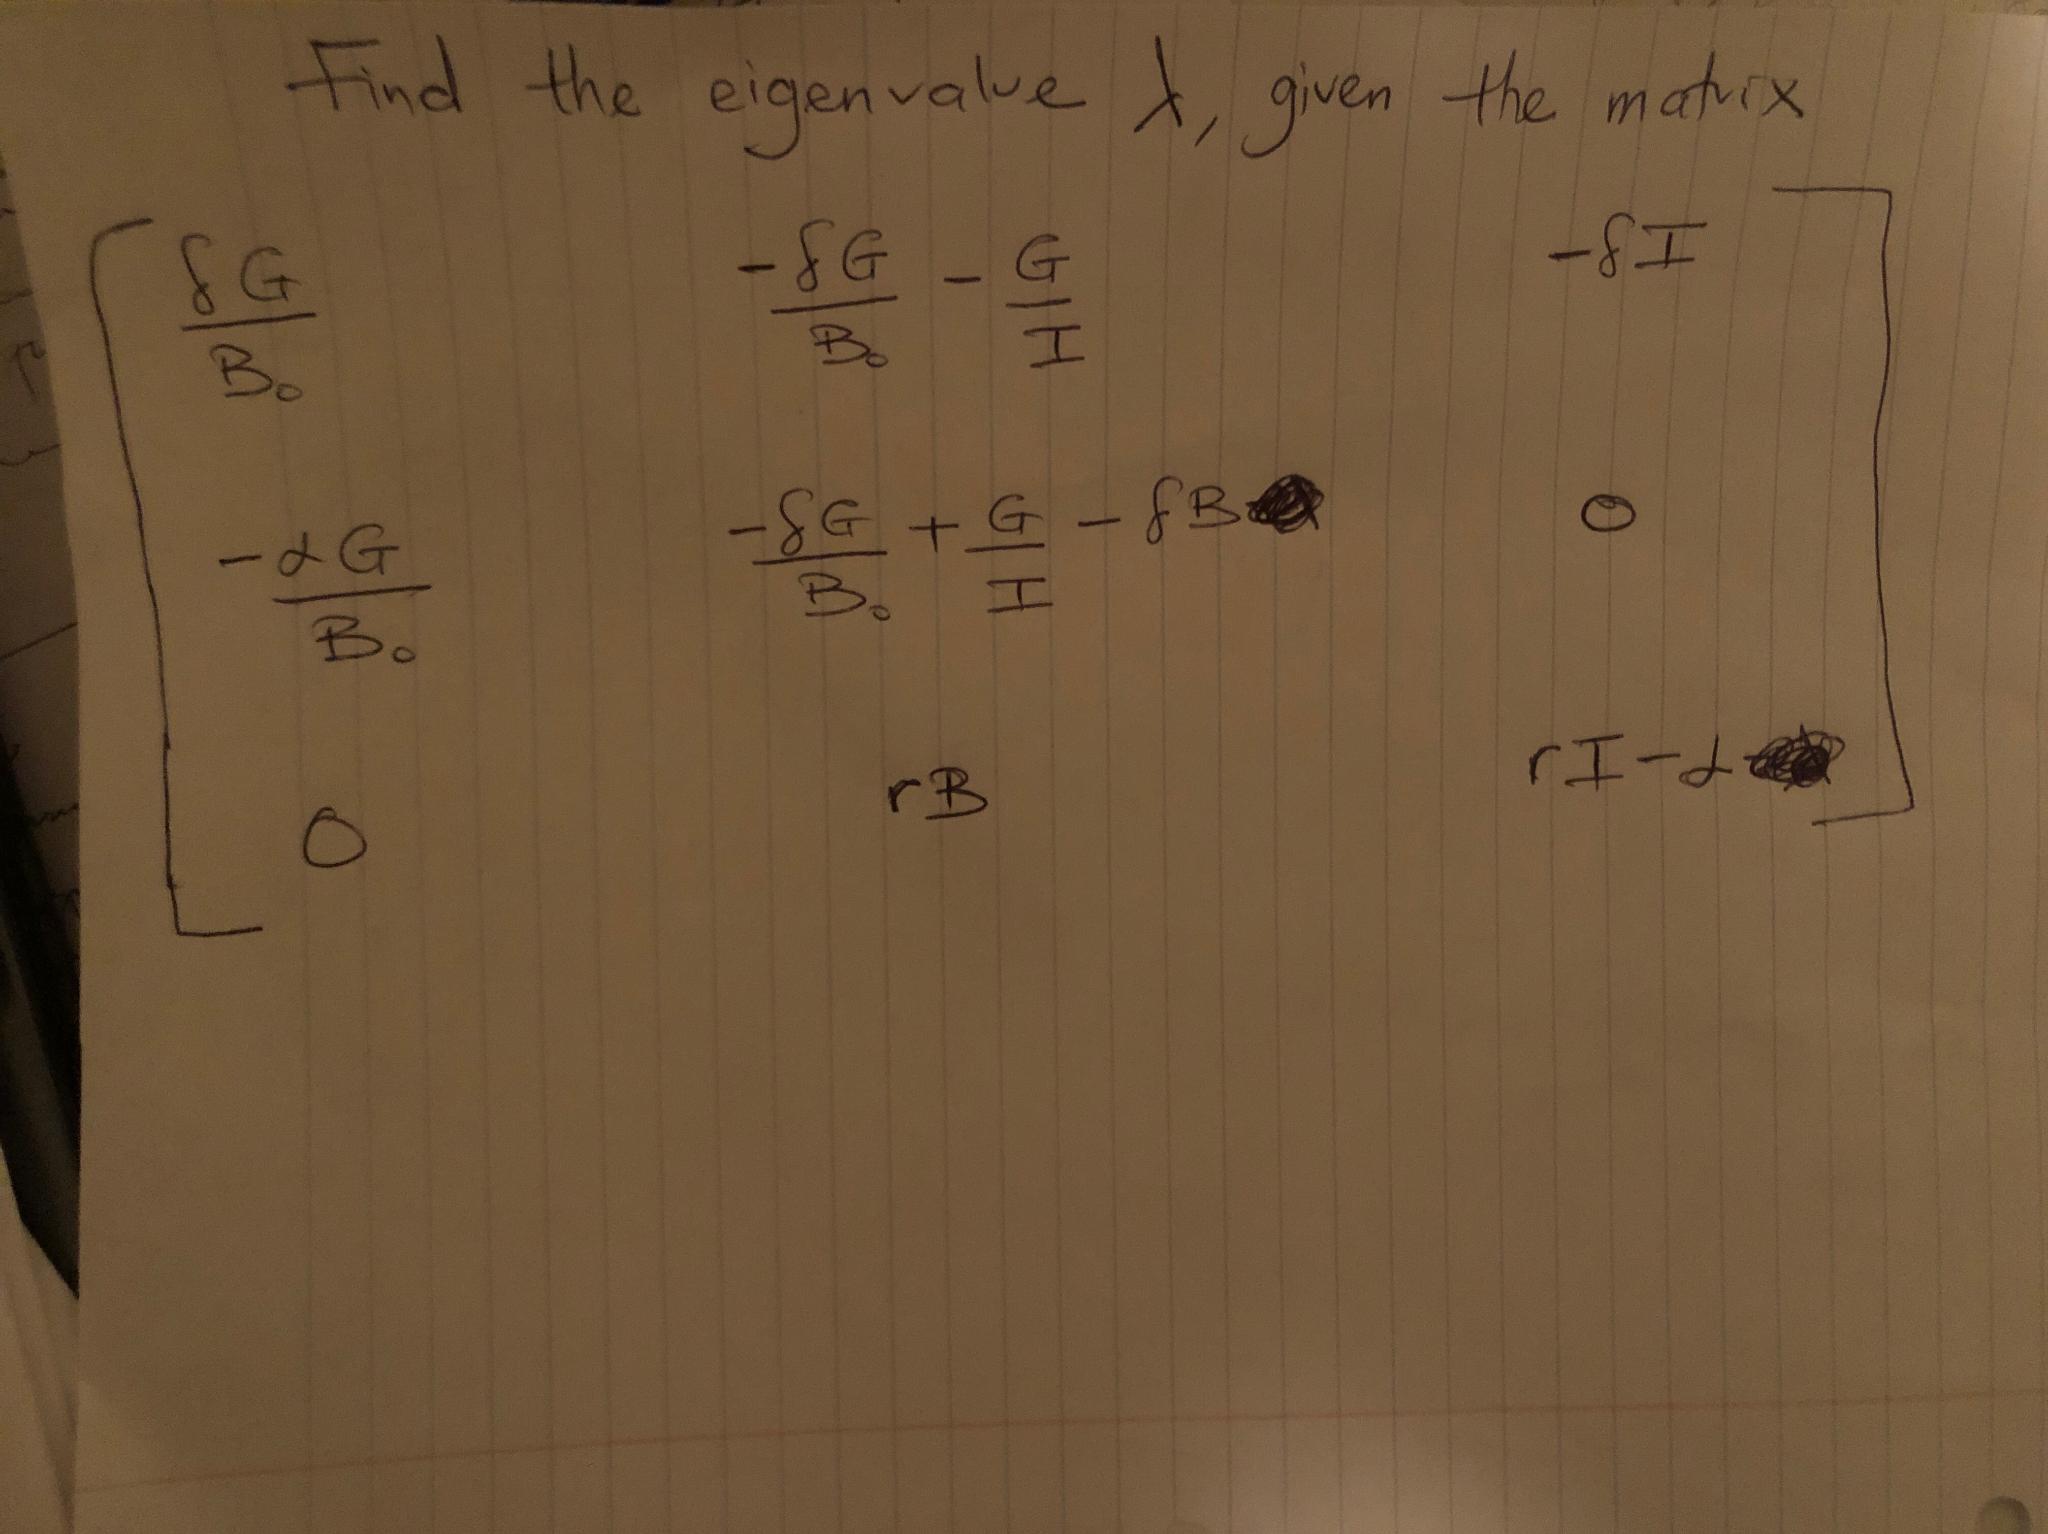 Find the eigenvalue λ, given the matrix
δG/B₀ -δG/B₀ - G/I -δI
-αG/B₀ -δG/B₀ + G/I - δB 0
0 rB rI-α